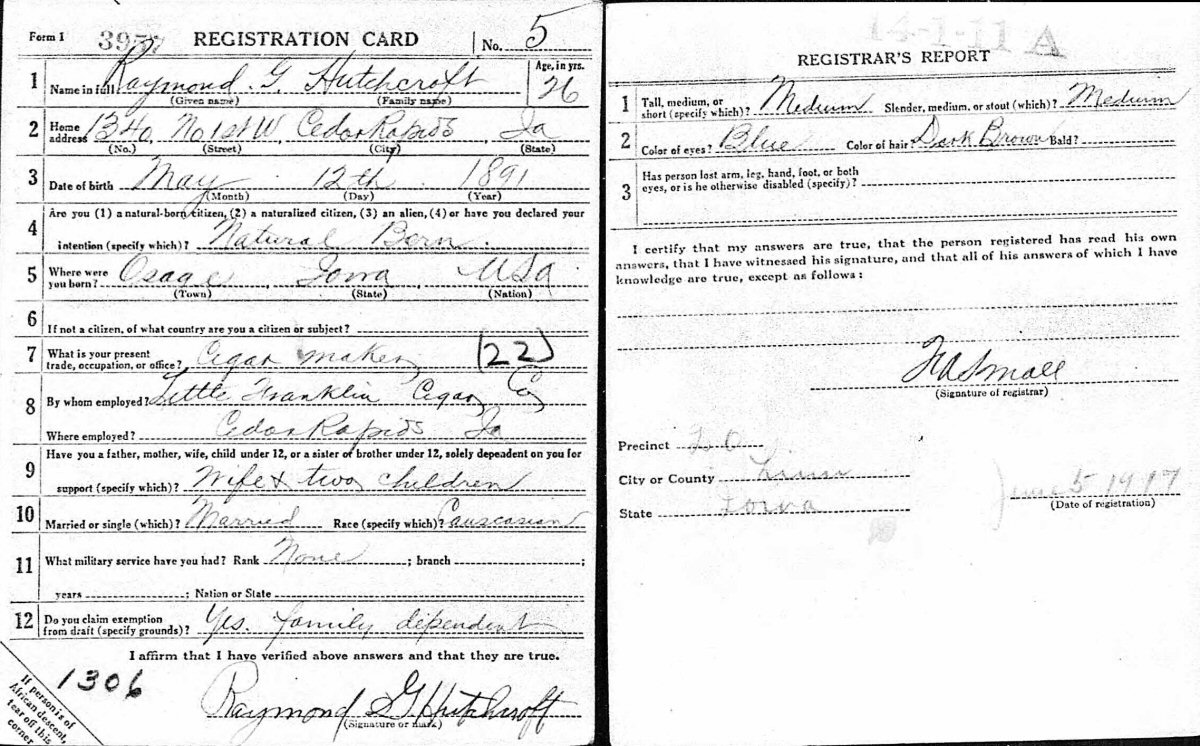 Form 1 3957 REGISTRATION CARD No. 5
1 Name in full Raymond. G. Hutchcroft Age, in yrs. 26
(Given name) (Family name)
2 Home address 1340, No 1st W, Cedar Rapids Ia
(No.) (Street) (City) (State)
3 Date of birth May 12th 1891
(Month) (Day) (Year)
Are you (1) a natural-born citizen, (2) a naturalized citizen, (3) an alien, (4) or have you declared your
4 intention (specify which)? Natural Born.
5 Where were you born? Osage, Iowa, USa
(Town) (State) (Nation)
6 If not a citizen, of what country are you a citizen or subject?
7 What is your present trade, occupation, or office? Cigar maker (22)
8 By whom employed? Little Franklin Cigar Co
Where employed? Cedar Rapids Ia
9 Have you a father, mother, wife, child under 12, or a sister or brother under 12, solely dependent on you for
support (specify which)? Wife & two children
10 Married or single (which)? Married Race (specify which)? Causcasian
11 What military service have you had? Rank None ; branch ;
years ; Nation or State
12 Do you claim exemption from draft (specify grounds)? Yes. family dependent
I affirm that I have verified above answers and that they are true.
1306
Raymond G Hutchcroft
(Signature or mark)
If person is of
African descent,
tear off this
corner
14-1-11 A
REGISTRAR'S REPORT
1 Tall, medium, or short (specify which)? Medium Slender, medium, or stout (which)? Medium
2 Color of eyes? Blue Color of hair? Dark Brown Bald?
3 Has person lost arm, leg, hand, foot, or both
eyes, or is he otherwise disabled (specify)?
I certify that my answers are true, that the person registered has read his own
answers, that I have witnessed his signature, and that all of his answers of which I have
knowledge are true, except as follows:
Small
(Signature of registrar)
Precinct
City or County Linn
State Iowa
June 5 1917
(Date of registration)